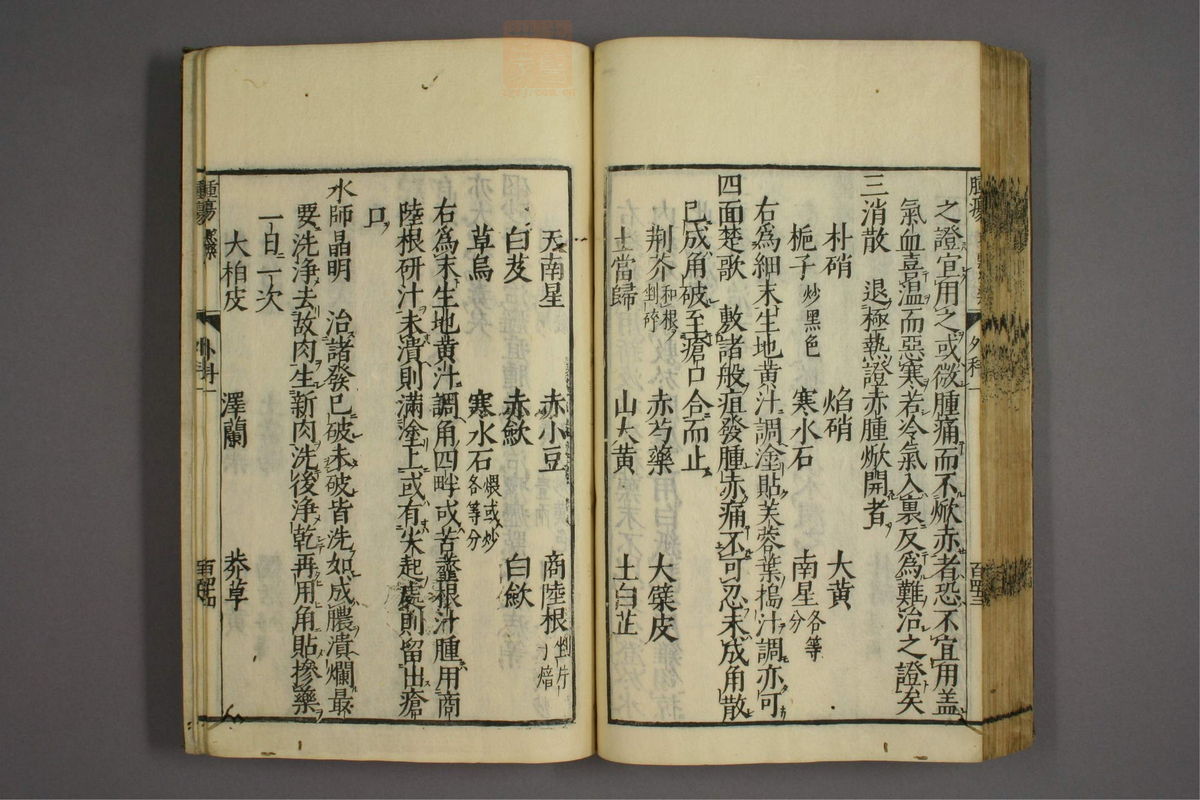 之證宜用之或微腫痛而不焮赤者恐不宜用盖
氣血喜溫而惡寒若冷氣入裏反爲難治之證矣
三消散　退極熱證赤腫焮開者
朴硝　焰硝　大黃
梔子炒黑色　寒水石　南星各等分
右爲細末生地黃汁調塗貼芙蓉葉搗汁調亦可
四面楚歌　敷諸般疽發腫赤痛不可忍未成角散
已成角破至瘡口合而止
荆芥和根剉碎　赤芍藥　大櫱皮
土當歸　山大黃　土白芷
天南星　赤小豆　商陸根剉片焙
白芨　赤歛　白歛
草烏　寒水石煨或炒各等分
右爲末生地黃汁調角四畔或苦䕬根汁腫用商
陸根研汁未潰則滿塗上或有尖起處則留出瘡
口
水師晶明　治諸發已破未破皆洗如成膿潰爛最
要洗淨去故肉生新肉洗後淨乾再用角貼摻藥
一日一次
大柏皮　澤蘭　莽草